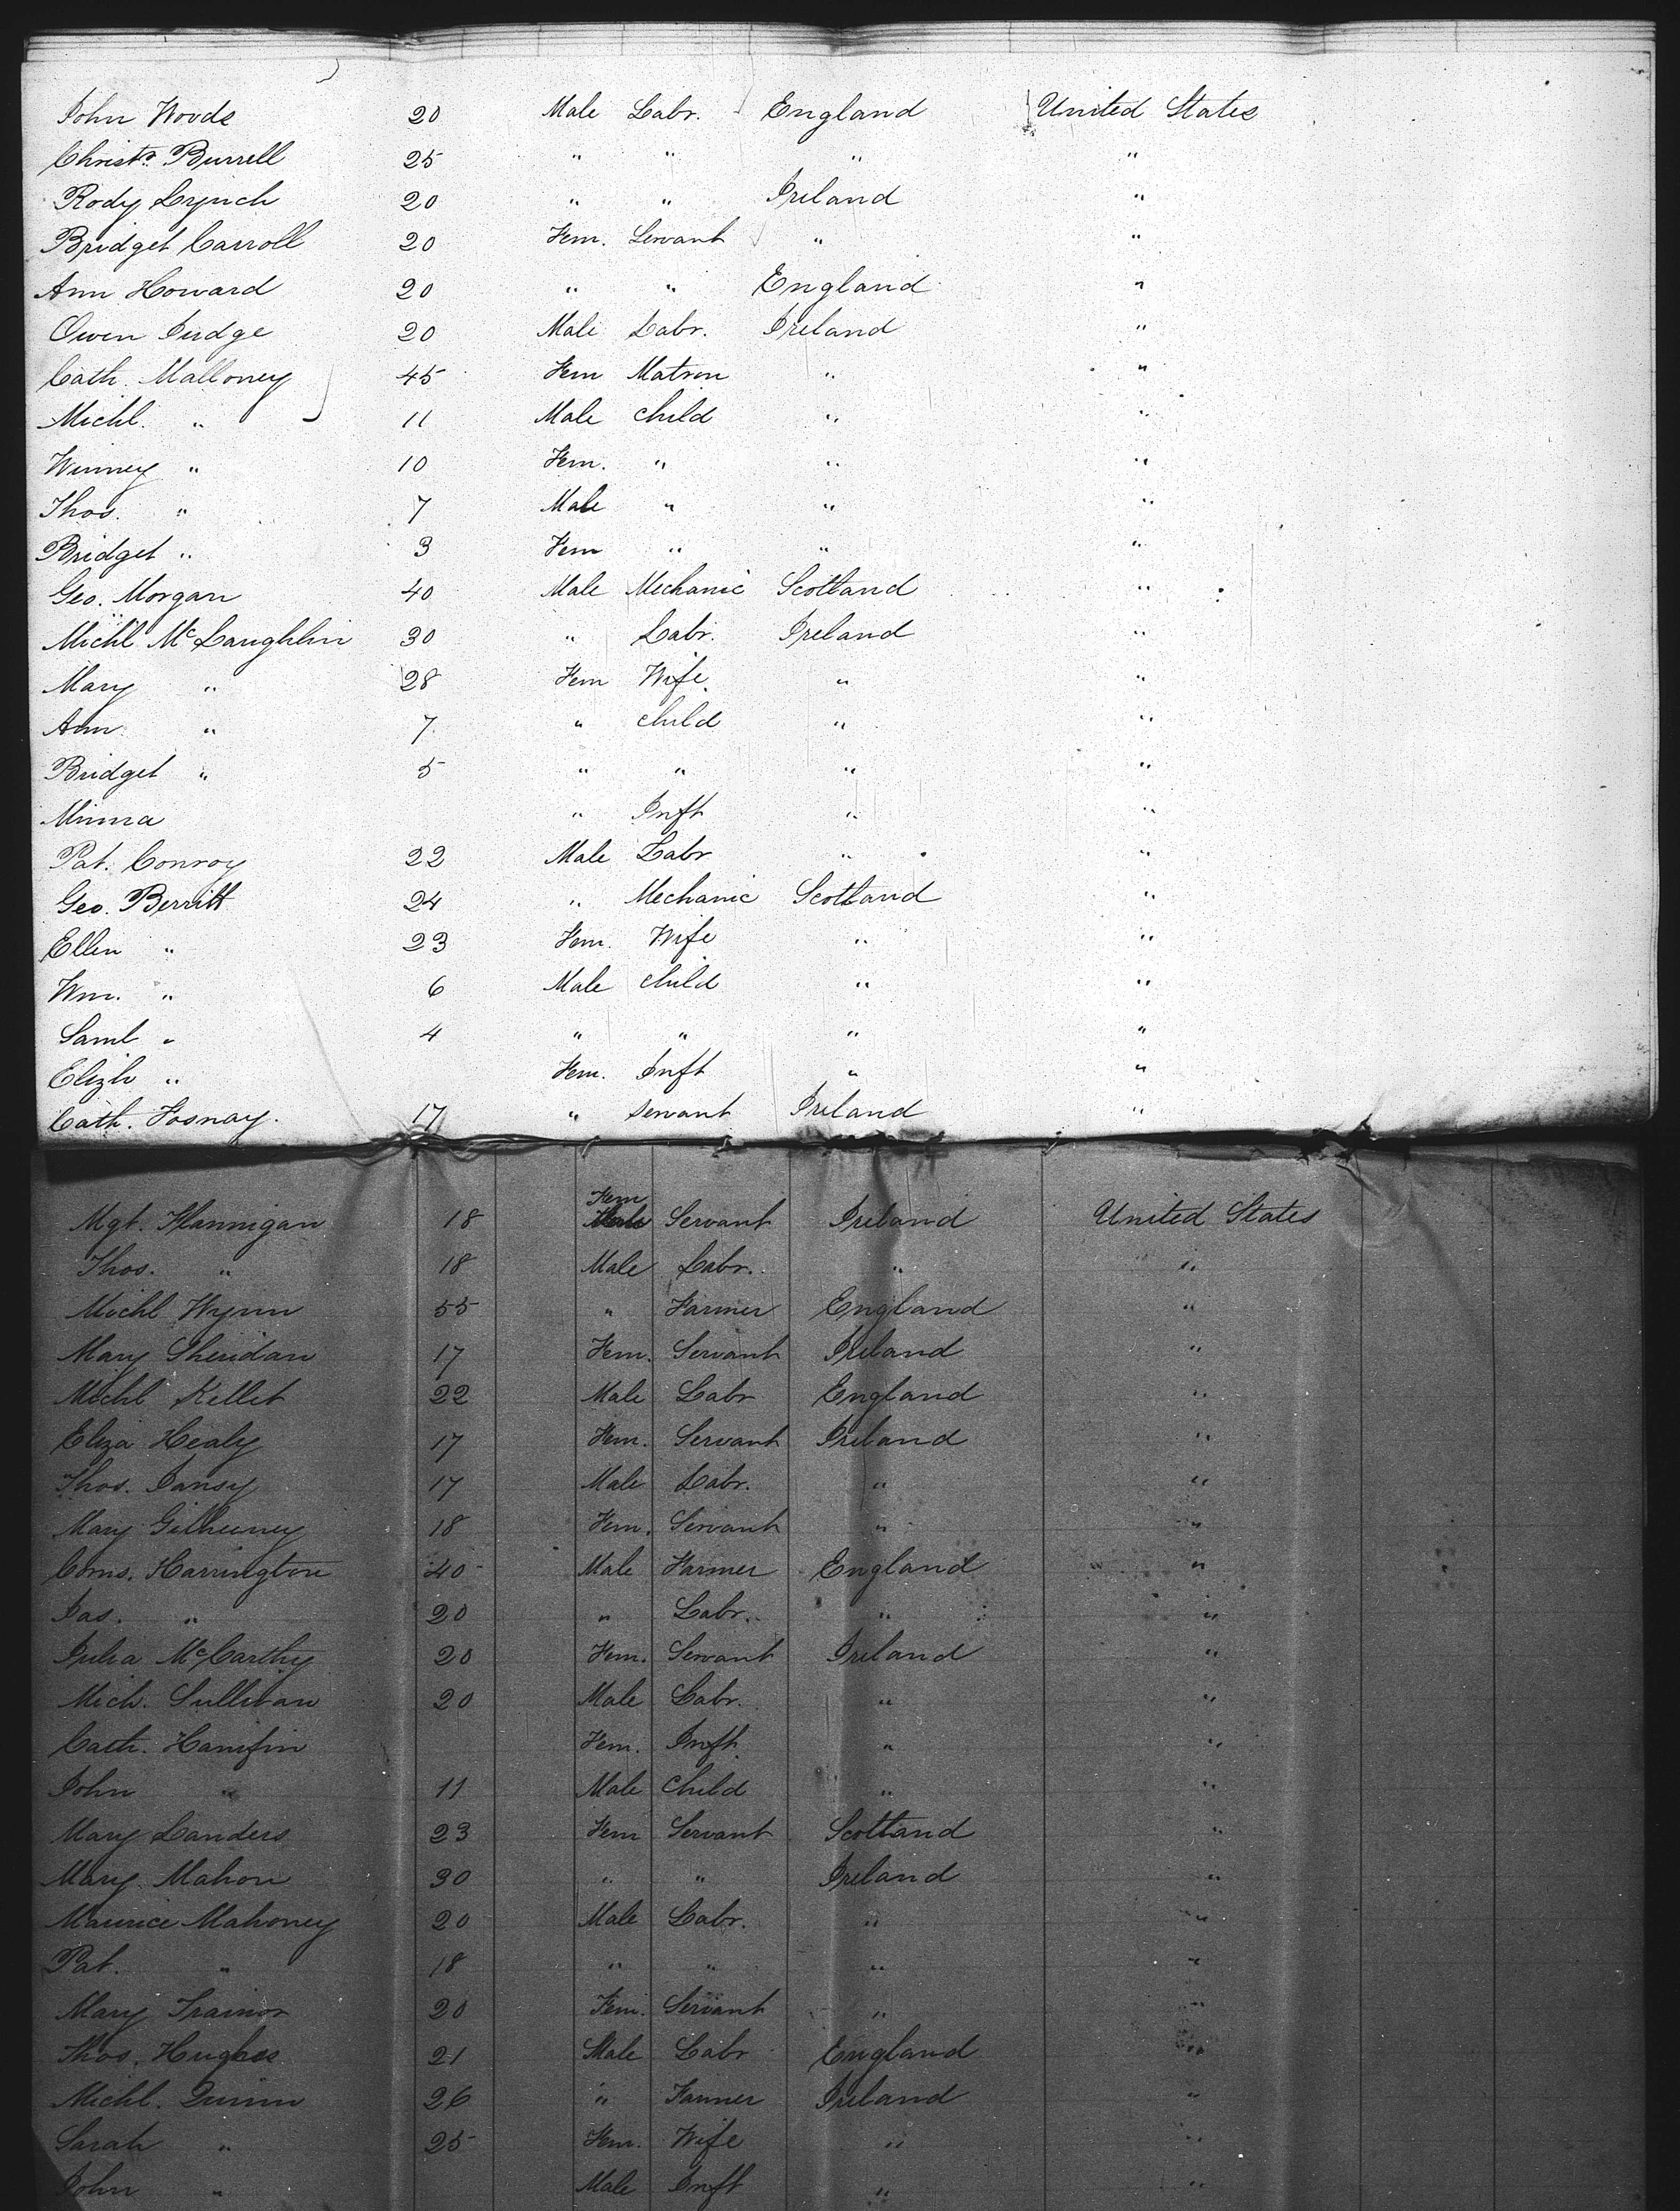 John Woods 20 Male Labr. England United States
Christr. Burrell 25 " " " "
Rody Lynch 20 " " Ireland "
Bridget Carroll 20 Fem. Servant " "
Ann Howard 20 " " England "
Owen Judge 20 Male Labr. Ireland "
Cath. Malloney 45 Fem Matron " "
Michl. " 11 Male child " "
Winney " 10 Fem. " " "
Thos. " 7 Male " " "
Bridget " 3 Fem " " "
Geo. Morgan 40 Male Mechanic Scotland "
Michl McLaughlin 30 " Labr. Ireland "
Mary " 28 Fem Wife " "
Ann " 7 " child " "
Bridget " 5 " " " "
Minna " Inft " "
Pat. Conroy 22 Male Labr " "
Geo. Berritt 24 " Mechanic Scotland "
Ellen " 23 Fem. Wife " "
Wm. " 6 Male child " "
Saml " 4 " " " "
Elizh " Fem. Inft " "
Cath. Fosnay. 17 " servant Ireland "
Mgt. Flannigan 18 Fem Servant Ireland United States
Thos. " 18 Male Labr. " "
Michl Wynn 55 " Farmer England "
Mary Sheridan 17 Fem. Servant Ireland "
Michl Kellet 22 Male Labr England "
Eliza Healy 17 Fem. Servant Ireland "
Thos. Dansy 17 Male Labr. " "
Mary Gilheeney 18 Fem. Servant " "
Corns. Harrington 40 Male Farmer England "
Jas. " 20 " Labr. " "
Julia McCarthy 20 Fem. Servant Ireland "
Mich. Sullivan 20 Male Labr. " "
Cath. Hanifin Fem. Inft. " "
John " 11 Male child " "
Mary Landers 23 Fem Servant Scotland "
Mary Mahon 30 " " Ireland "
Maurice Mahoney 20 Male Labr. " "
Pat. " 18 " " " "
Mary Trainor 20 Fem. Servant " "
Thos. Hughes 21 Male Labr England "
Michl. Quinn 26 " Farmer Ireland "
Sarah " 25 Fem. Wife " "
John " Male Inft " "